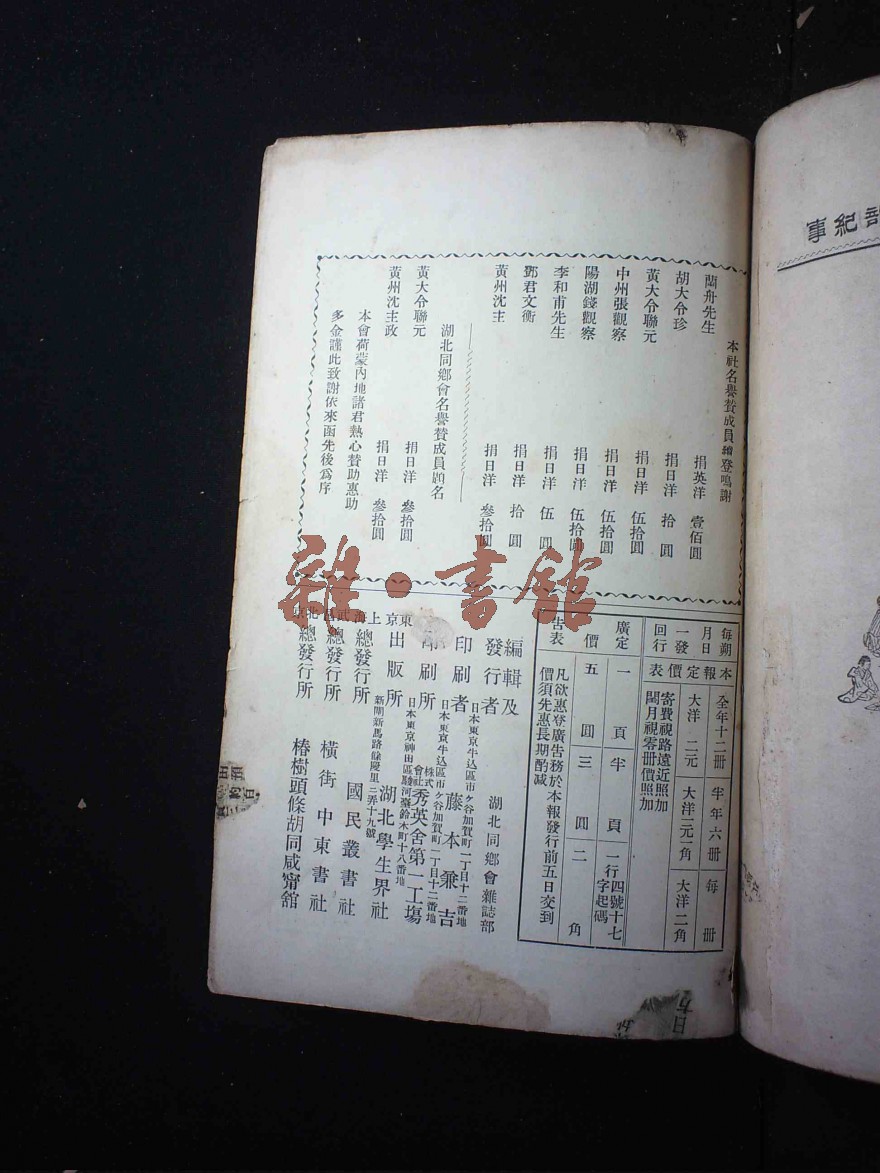 本社名譽贊成員續登鳴謝
蘭舟先生 捐英洋 壹佰圓
胡大令珍 捐日洋 拾圓
黃大令聯元 捐日洋 伍拾圓
中州張觀察 捐日洋 伍拾圓
陽湖錢觀察 捐日洋 伍拾圓
李和甫先生 捐日洋 伍圓
鄧君文衡 捐日洋 拾圓
黃州沈主 捐日洋 參拾圓
湖北同鄉會名譽贊成員題名
黃大令聯元 捐日洋 參拾圓
黃州沈主政 捐日洋 參拾圓
本會荷蒙內地諸君熱心贊助惠助
多金謹此致謝依來函先後爲序
每朔 本報定價表
月日
一發
回行
全年十二冊 半年六冊 每冊
大洋二元 大洋一元一角 大洋二角
寄費視路遠近照加
閏月視零冊價照加
廣定
價
告表
一頁 半頁 一行四號十七字起碼
五圓 三圓 二角
凡欲惠登廣告務於本報發行前五日交到
價須先惠長期酌減
編輯及
發行者 湖北同鄉會雜誌部
日本東京牛込區市ヶ谷加賀町一丁目十二番地
印刷者 藤本兼吉
日本東京牛込區市ヶ谷加賀町一丁目十二番地
印刷所 株式會社秀英舍第一工場
日本東京神田區駿河臺鈴木町十八番地
東京出版所 湖北學生界社
新閘新馬路餘慶里二弄十九號
上海總發行所 國民叢書社
武昌總發行所 橫街中東書社
北京總發行所 椿樹頭條胡同咸甯館
紀事
雜·書館